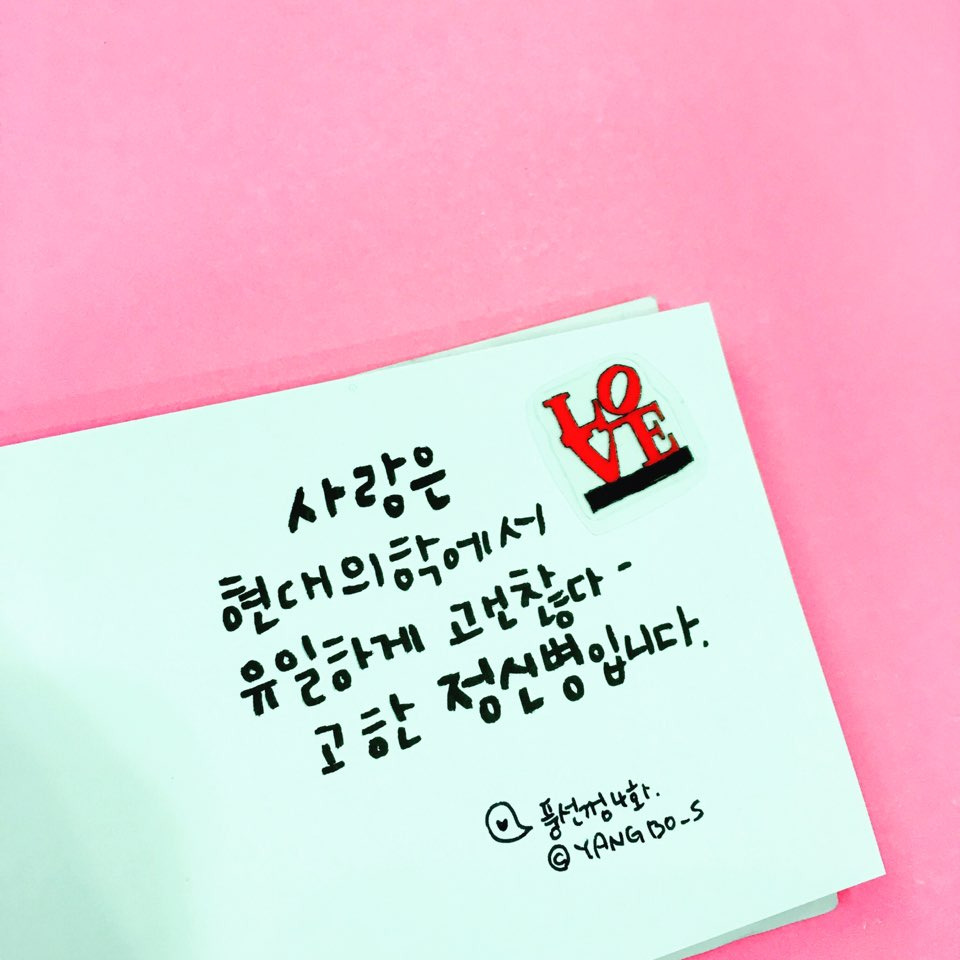 LOVE
사랑은
현대의학에서
유일하게 괜찮다-
고한 정신병입니다.
풍선껌 4화.
©YANGBO_S